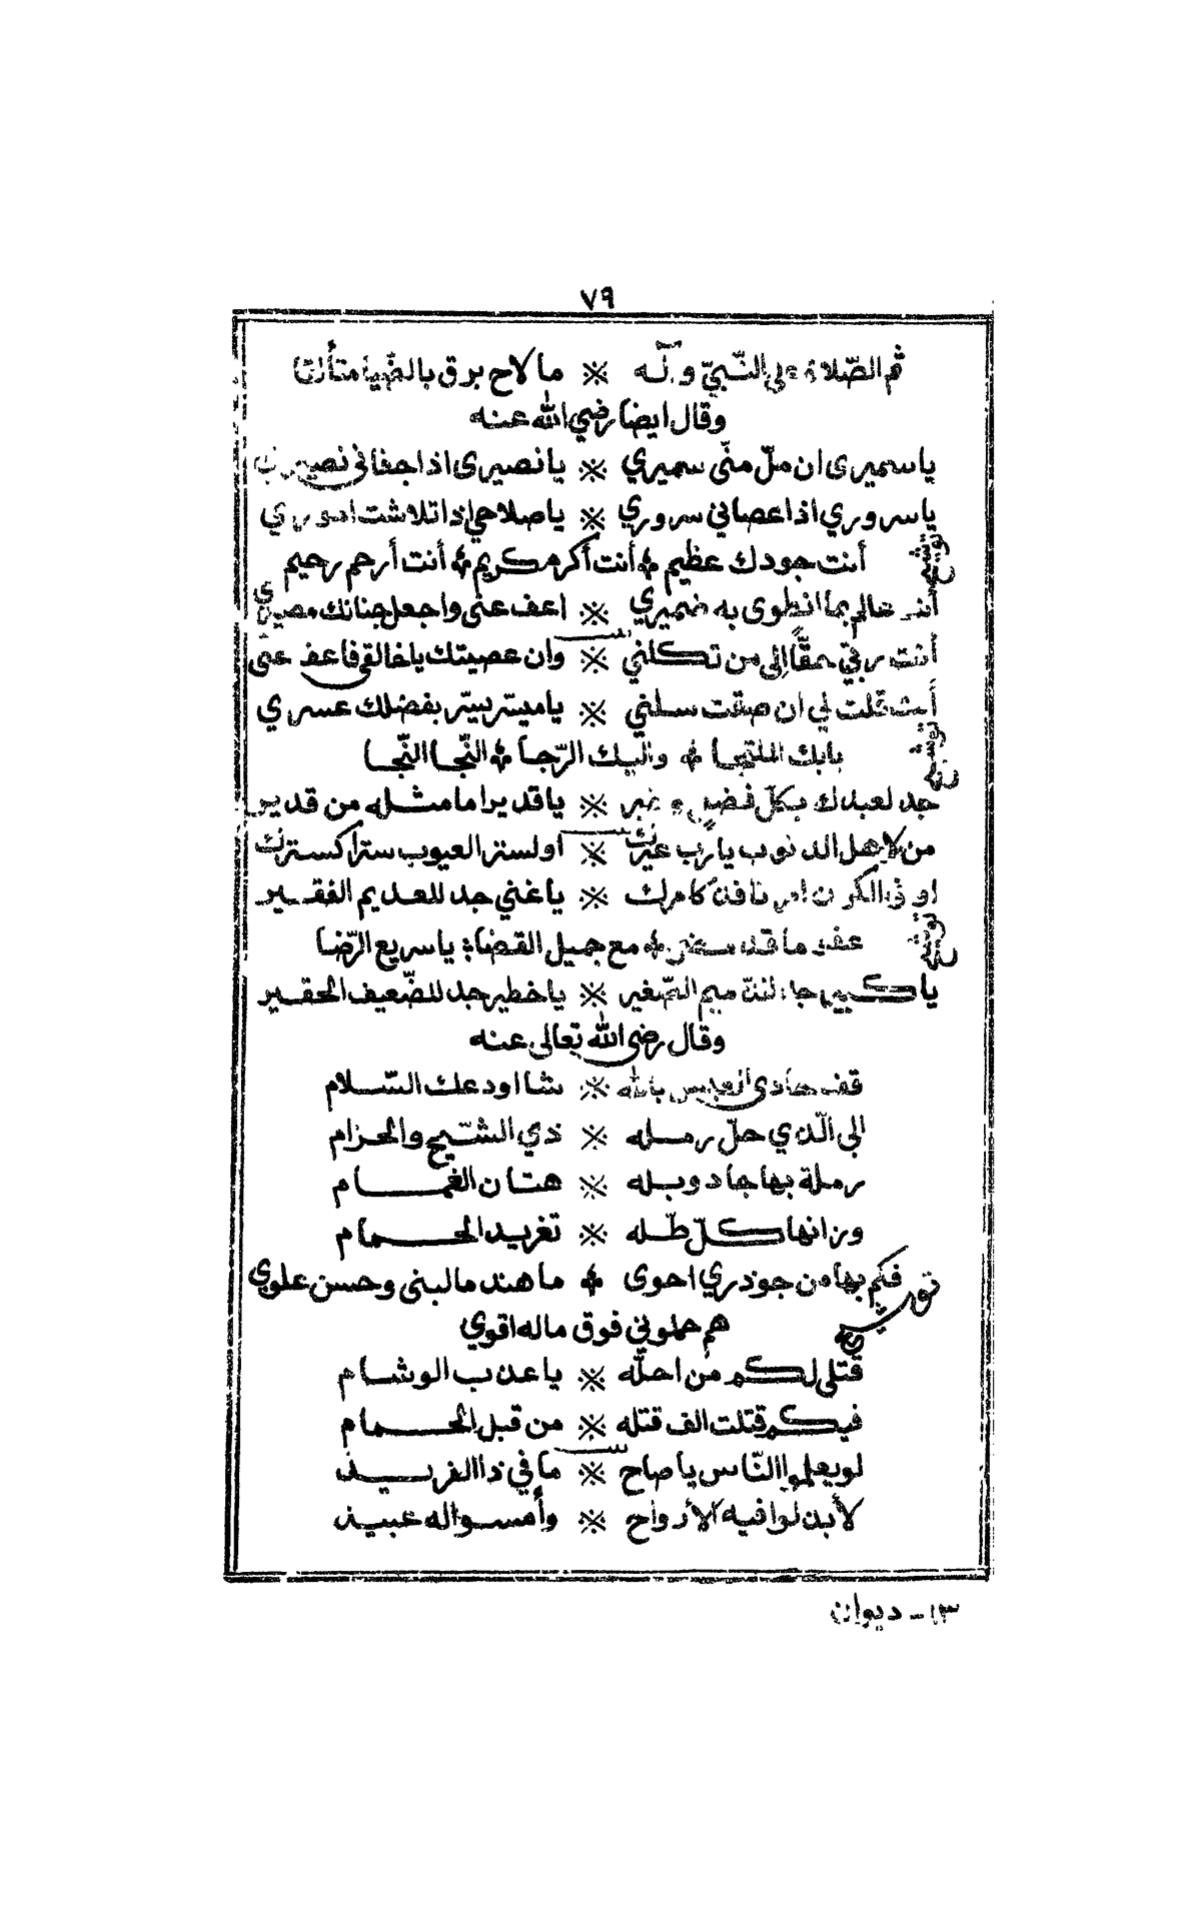 ٧٩
ثم الصّلاة على النّبيّ وآله ※ ما لاح برق بالضّيا متألقا
وقال ايضا رضي الله عنه
يا سميرى ان ملّ منّى سميري ※ يا نصيرى اذا جفانى نصيرى
يا سروري اذا عصاني سروري ※ يا صلاحي اذا تلاشت اموري
توشيح أنت جودك عظيم ※ أنت أكرم كريم ※ أنت أرحم رحيم
أنت عالم بما انطوى به ضميري ※ اعف عنى واجعل جنانك مصيري
أنت ربّي حقًّا إلى من تكلني ※ وان عصيتك يا خالقى فاعف عنى
أنت قلت لي ان صقت سلني ※ يا ميسّر يسّر بفضلك عسري
توشيح بابك الملتجا ※ واليك الرّجا ※ النّجا النّجا
جد لعبدك بكل فضل وخير ※ يا قديرا ما مثله من قدير
من لاهل الذنوب يا رب غيرك ※ او لستر العيوب سترا كسترك
او في الكون امر نافذ كامرك ※ يا غني جد للعديم الفقير
توشيح عفو ما قد مضى ※ مع جميل القضا ※ يا سريع الرّضا
يا كبير الصّغير ※ يا خطير جد للضّعيف الحقير
وقال رضى الله تعالى عنه
قف حادى العيس بالله ※ شا اودعك السّلام
الى الّذي حلّ رمله ※ ذي الشّيح والخزام
رملة بها جاد وبله ※ هتان الغمام
وزانها كلّ طلّه ※ تغريد الحمام
توشيح فكم بها من جوذري احوى ※ ما هند ما لبنى وحسن علوي
هم حملوني فوق ماله اقوي
قتلى لكم من احلّه ※ يا عذب الوشام
فيكم قتلت الف قتله ※ من قبل الحمام
لو يعلموا النّاس يا صاح ※ ما في ذا الفريد
لأبذلوا فيه الأرواح ※ وأمسوا له عبيد
١٣ - ديوان